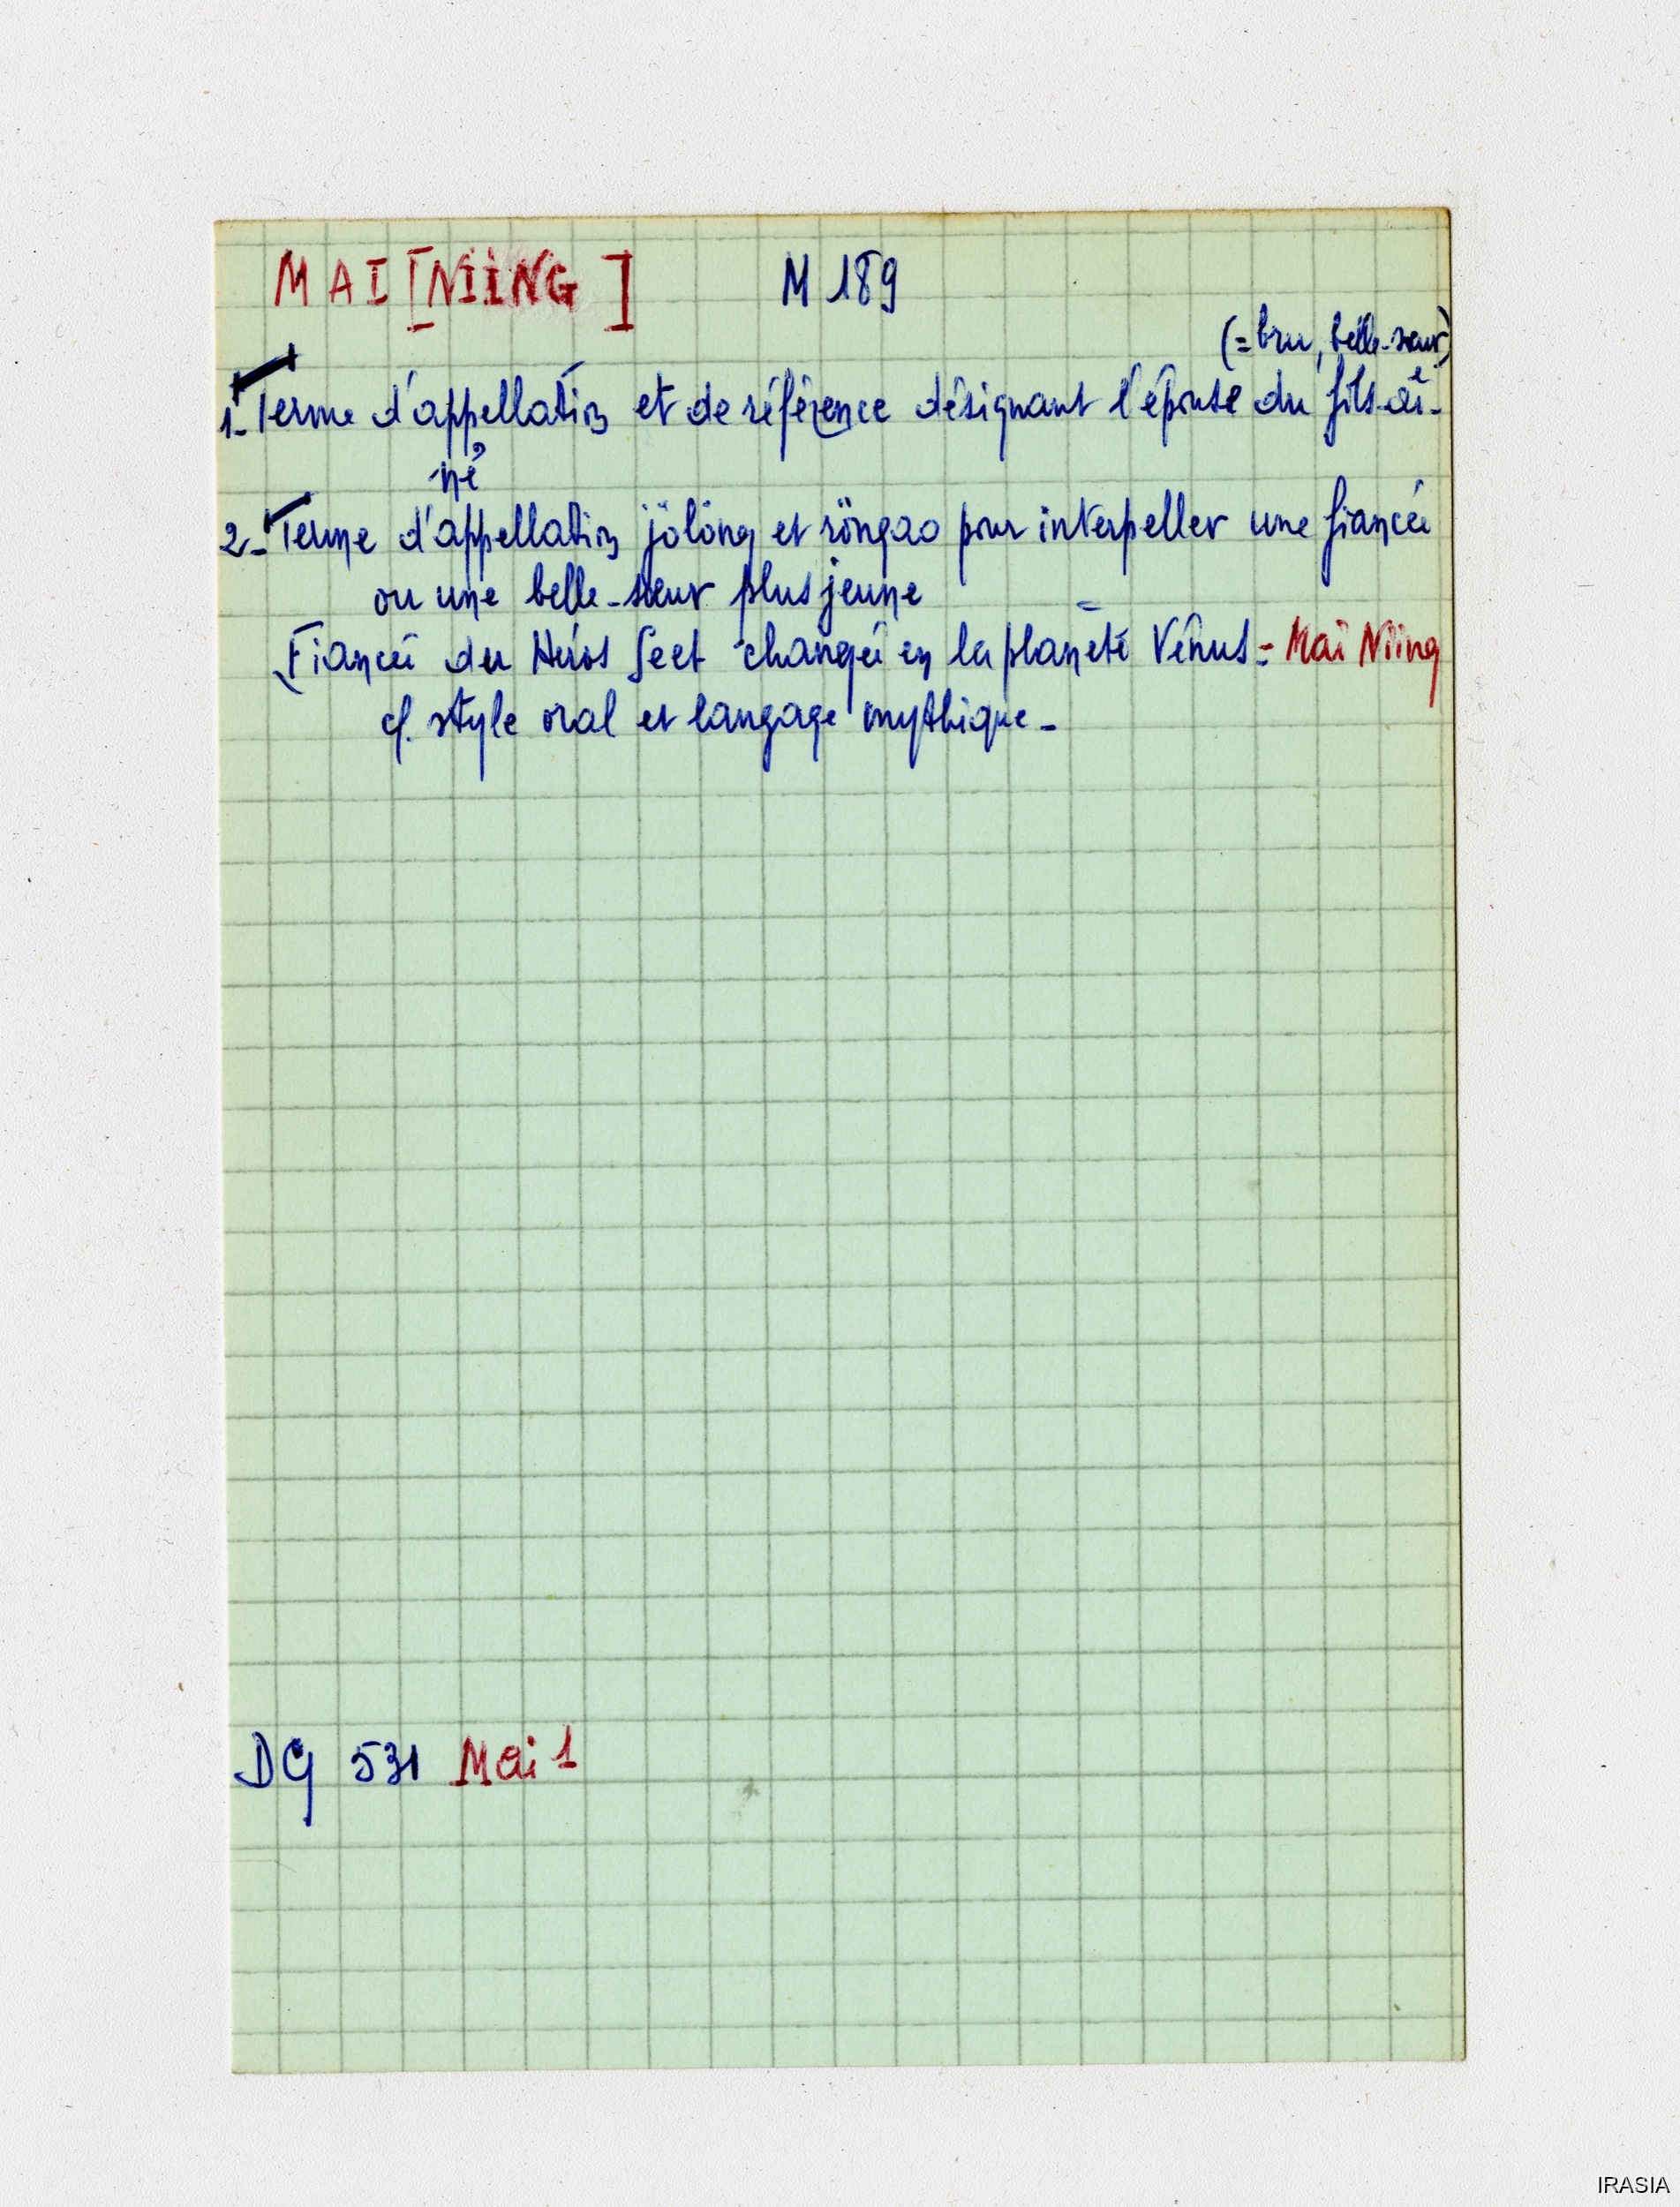 MAI [NIING] M 189
(= bru, belle-sœur)
1- Terme d'appellation et de référence désignant l'épouse du fils aî-
né
2- Terme d'appellation jölöng et röngao pour interpeller une fiancée
ou une belle-sœur plus jeune
Fiancée du Héros Seet changée en la planète Vénus = Mai Niing
cf. style oral et langage mythique -
DG 531 Mai 1
IRASIA